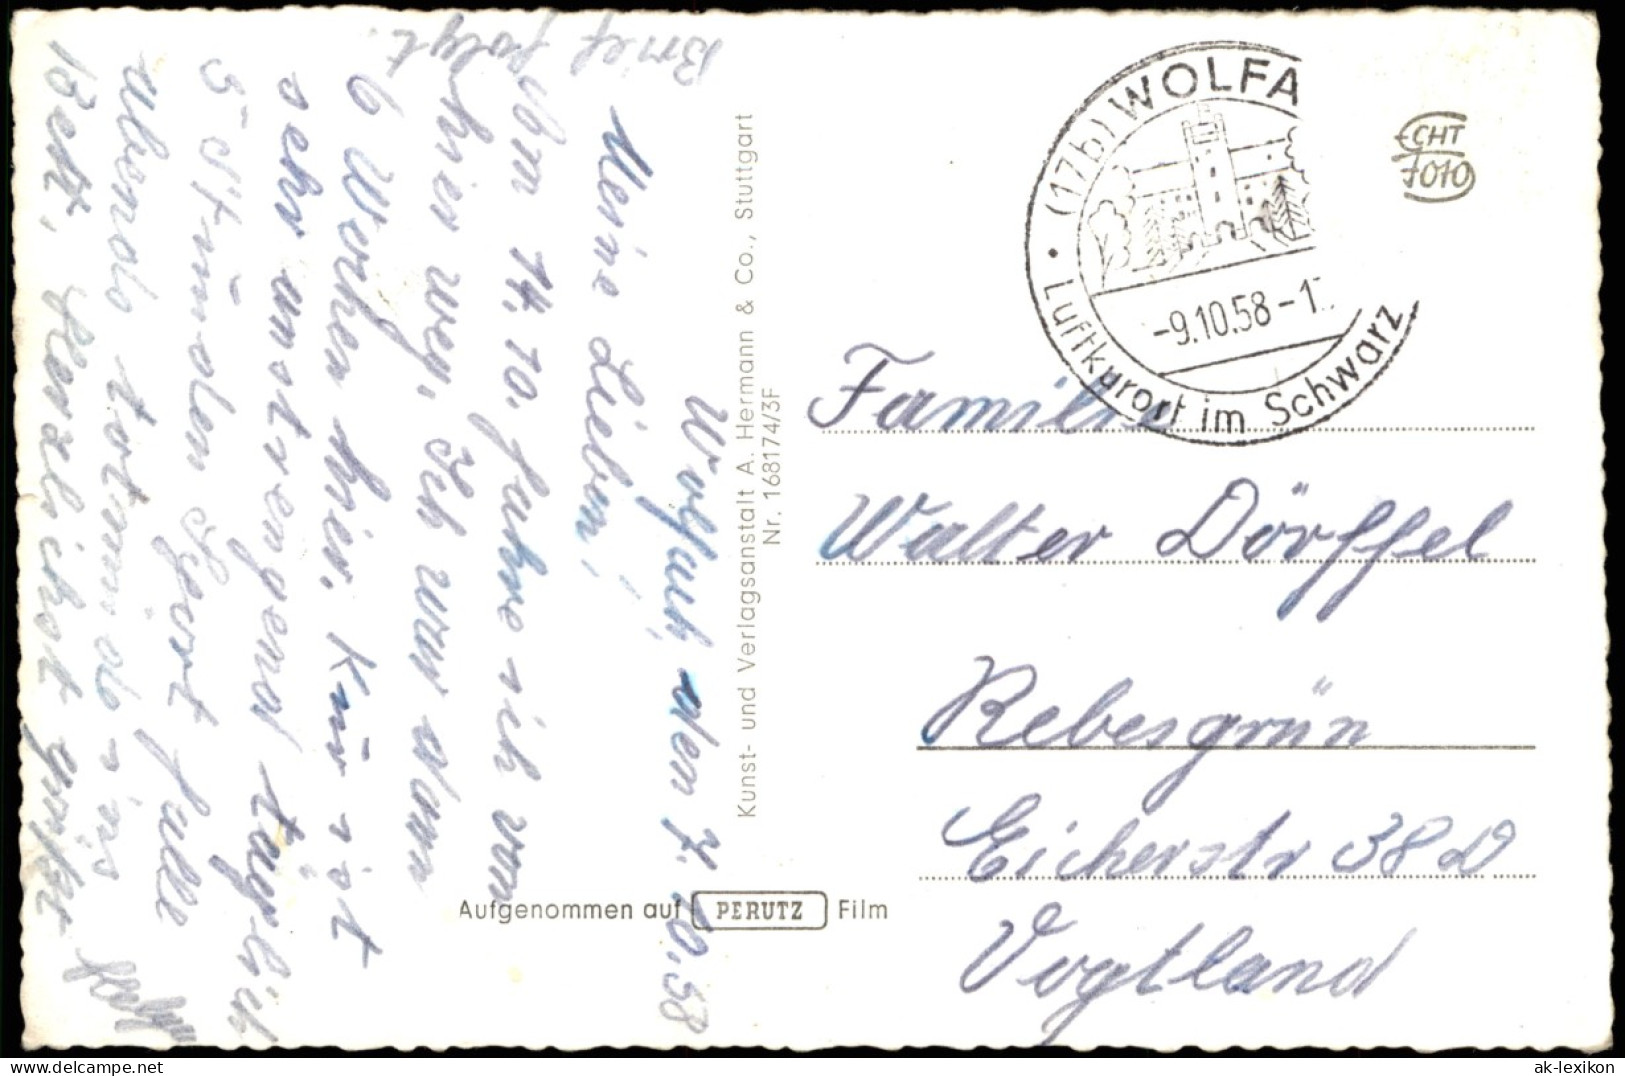 Brief folgt.
Wolfach, den 7.10.58
Meine Lieben!
Am 14.10. fahre ich von
hier weg. Ich war dann
6 Wochen hier. Kur ist
sehr anstrengend täglich
5 Stunden Sport falle
abends todmüde ins
Bett. Herzlichst grüßt
Kunst- und Verlagsanstalt A. Hermann & Co., Stuttgart
Nr. 1681 74/3F
Aufgenommen auf PERUTZ Film
(17b) WOLFA
-9.10.58-1
Luftkurort im Schwarz
ECHT
FOTO
Familie
Walter Dörffel
Rebesgrün
Eicherstr 38 D
Vogtland
© oldthing
ak-lexikon